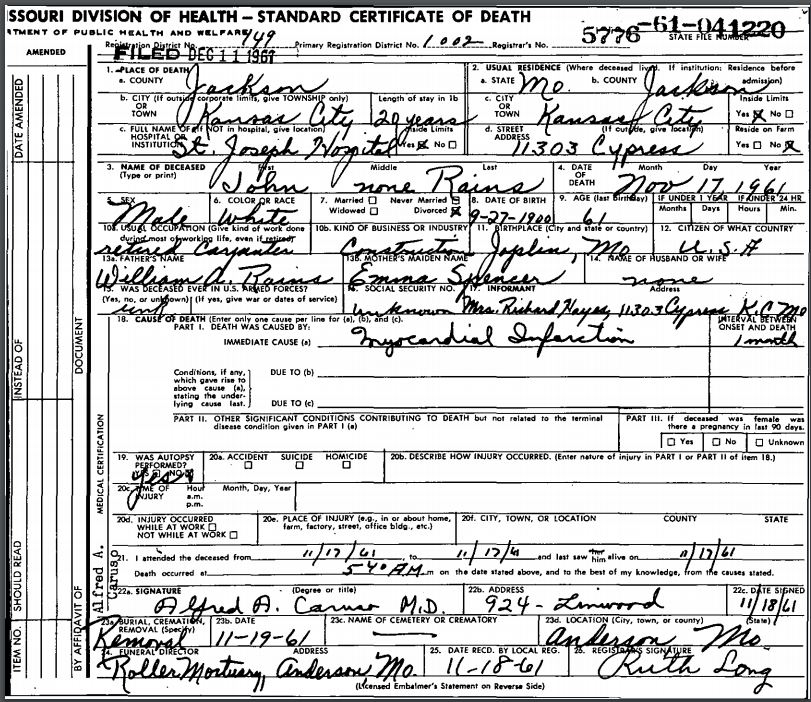 SSOURI DIVISION OF HEALTH — STANDARD CERTIFICATE OF DEATH
TMENT OF PUBLIC HEALTH AND WELFARE
5776 -61-041220
STATE FILE NUMBER
AMENDED
Registration District No. 149 Primary Registration District No. 1002 Registrar's No.
FILED DEC 11 1961
1. PLACE OF DEATH
a. COUNTY Jackson
2. USUAL RESIDENCE (Where deceased lived. If institution: Residence before admission)
a. STATE Mo. b. COUNTY Jackson
b. CITY (If outside corporate limits, give TOWNSHIP only) OR TOWN Kansas City
Length of stay in 1b 20 years
c. CITY OR TOWN Kansas City
Inside Limits Yes No
c. FULL NAME OF (If NOT in hospital, give location) HOSPITAL OR INSTITUTION St. Joseph Hospital
Inside Limits Yes No
d. STREET ADDRESS (If outside, give location) 11303 Cypress
Reside on Farm Yes No
3. NAME OF DECEASED (Type or print) First Middle Last
John none Rains
4. DATE OF DEATH Month Day Year
Nov 17, 1961
5. SEX Male
6. COLOR OR RACE White
7. Married Never Married Widowed Divorced
8. DATE OF BIRTH 9-27-1900
9. AGE (last birthday) 61
IF UNDER 1 YEAR Months Days
IF UNDER 24 HR Hours Min.
10a. USUAL OCCUPATION (Give kind of work done during most of working life, even if retired)
retired Carpanter
10b. KIND OF BUSINESS OR INDUSTRY Construction
11. BIRTHPLACE (City and state or country) Joplin, Mo
12. CITIZEN OF WHAT COUNTRY U.S.A
13a. FATHER'S NAME William A. Rains
13b. MOTHER'S MAIDEN NAME Emma Spencer
14. NAME OF HUSBAND OR WIFE none
15. WAS DECEASED EVER IN U.S. ARMED FORCES? (Yes, no, or unknown) (If yes, give war or dates of service) unk
16. SOCIAL SECURITY NO. unknown
17. INFORMANT Address
Mrs. Richard Hayes, 11303 Cypress K.C. Mo
18. CAUSE OF DEATH (Enter only one cause per line for (a), (b), and (c).
PART I. DEATH WAS CAUSED BY:
IMMEDIATE CAUSE (a) Myocardial Infarction
INTERVAL BETWEEN ONSET AND DEATH 1 month
Conditions, if any, which gave rise to above cause (a), stating the underlying cause last.
DUE TO (b)
DUE TO (c)
PART II. OTHER SIGNIFICANT CONDITIONS CONTRIBUTING TO DEATH but not related to the terminal disease condition given in PART I (a)
PART III. If deceased was female was there a pregnancy in last 90 days.
Yes No Unknown
19. WAS AUTOPSY PERFORMED? YES NO yes
20a. ACCIDENT SUICIDE HOMICIDE
20b. DESCRIBE HOW INJURY OCCURRED. (Enter nature of injury in PART I or PART II of item 18.)
20c. TIME OF INJURY Hour a.m. p.m. Month, Day, Year
20d. INJURY OCCURRED WHILE AT WORK NOT WHILE AT WORK
20e. PLACE OF INJURY (e.g., in or about home, farm, factory, street, office bldg., etc.)
20f. CITY, TOWN, OR LOCATION COUNTY STATE
21. I attended the deceased from 11/17/61, to 11/17/61 and last saw her him alive on 11/17/61
Death occurred at 5 40 AM m on the date stated above, and to the best of my knowledge, from the causes stated.
22a. SIGNATURE (Degree or title) Alfred A. Caruso M.D.
22b. ADDRESS 924 - Linwood
22c. DATE SIGNED 11/18/61
23a. BURIAL, CREMATION, REMOVAL (Specify) Removal
23b. DATE 11-19-61
23c. NAME OF CEMETERY OR CREMATORY
23d. LOCATION (City, town, or county) (State) Anderson Mo.
24. FUNERAL DIRECTOR ADDRESS Roller Mortuary, Anderson Mo.
25. DATE RECD. BY LOCAL REG. 11-18-61
26. REGISTRAR'S SIGNATURE Ruth Long
(Licensed Embalmer's Statement on Reverse Side)
DATE AMENDED
INSTEAD OF
SHOULD READ
ITEM NO.
DOCUMENT
BY AFFIDAVIT OF
MEDICAL CERTIFICATION
Alfred A. Caruso